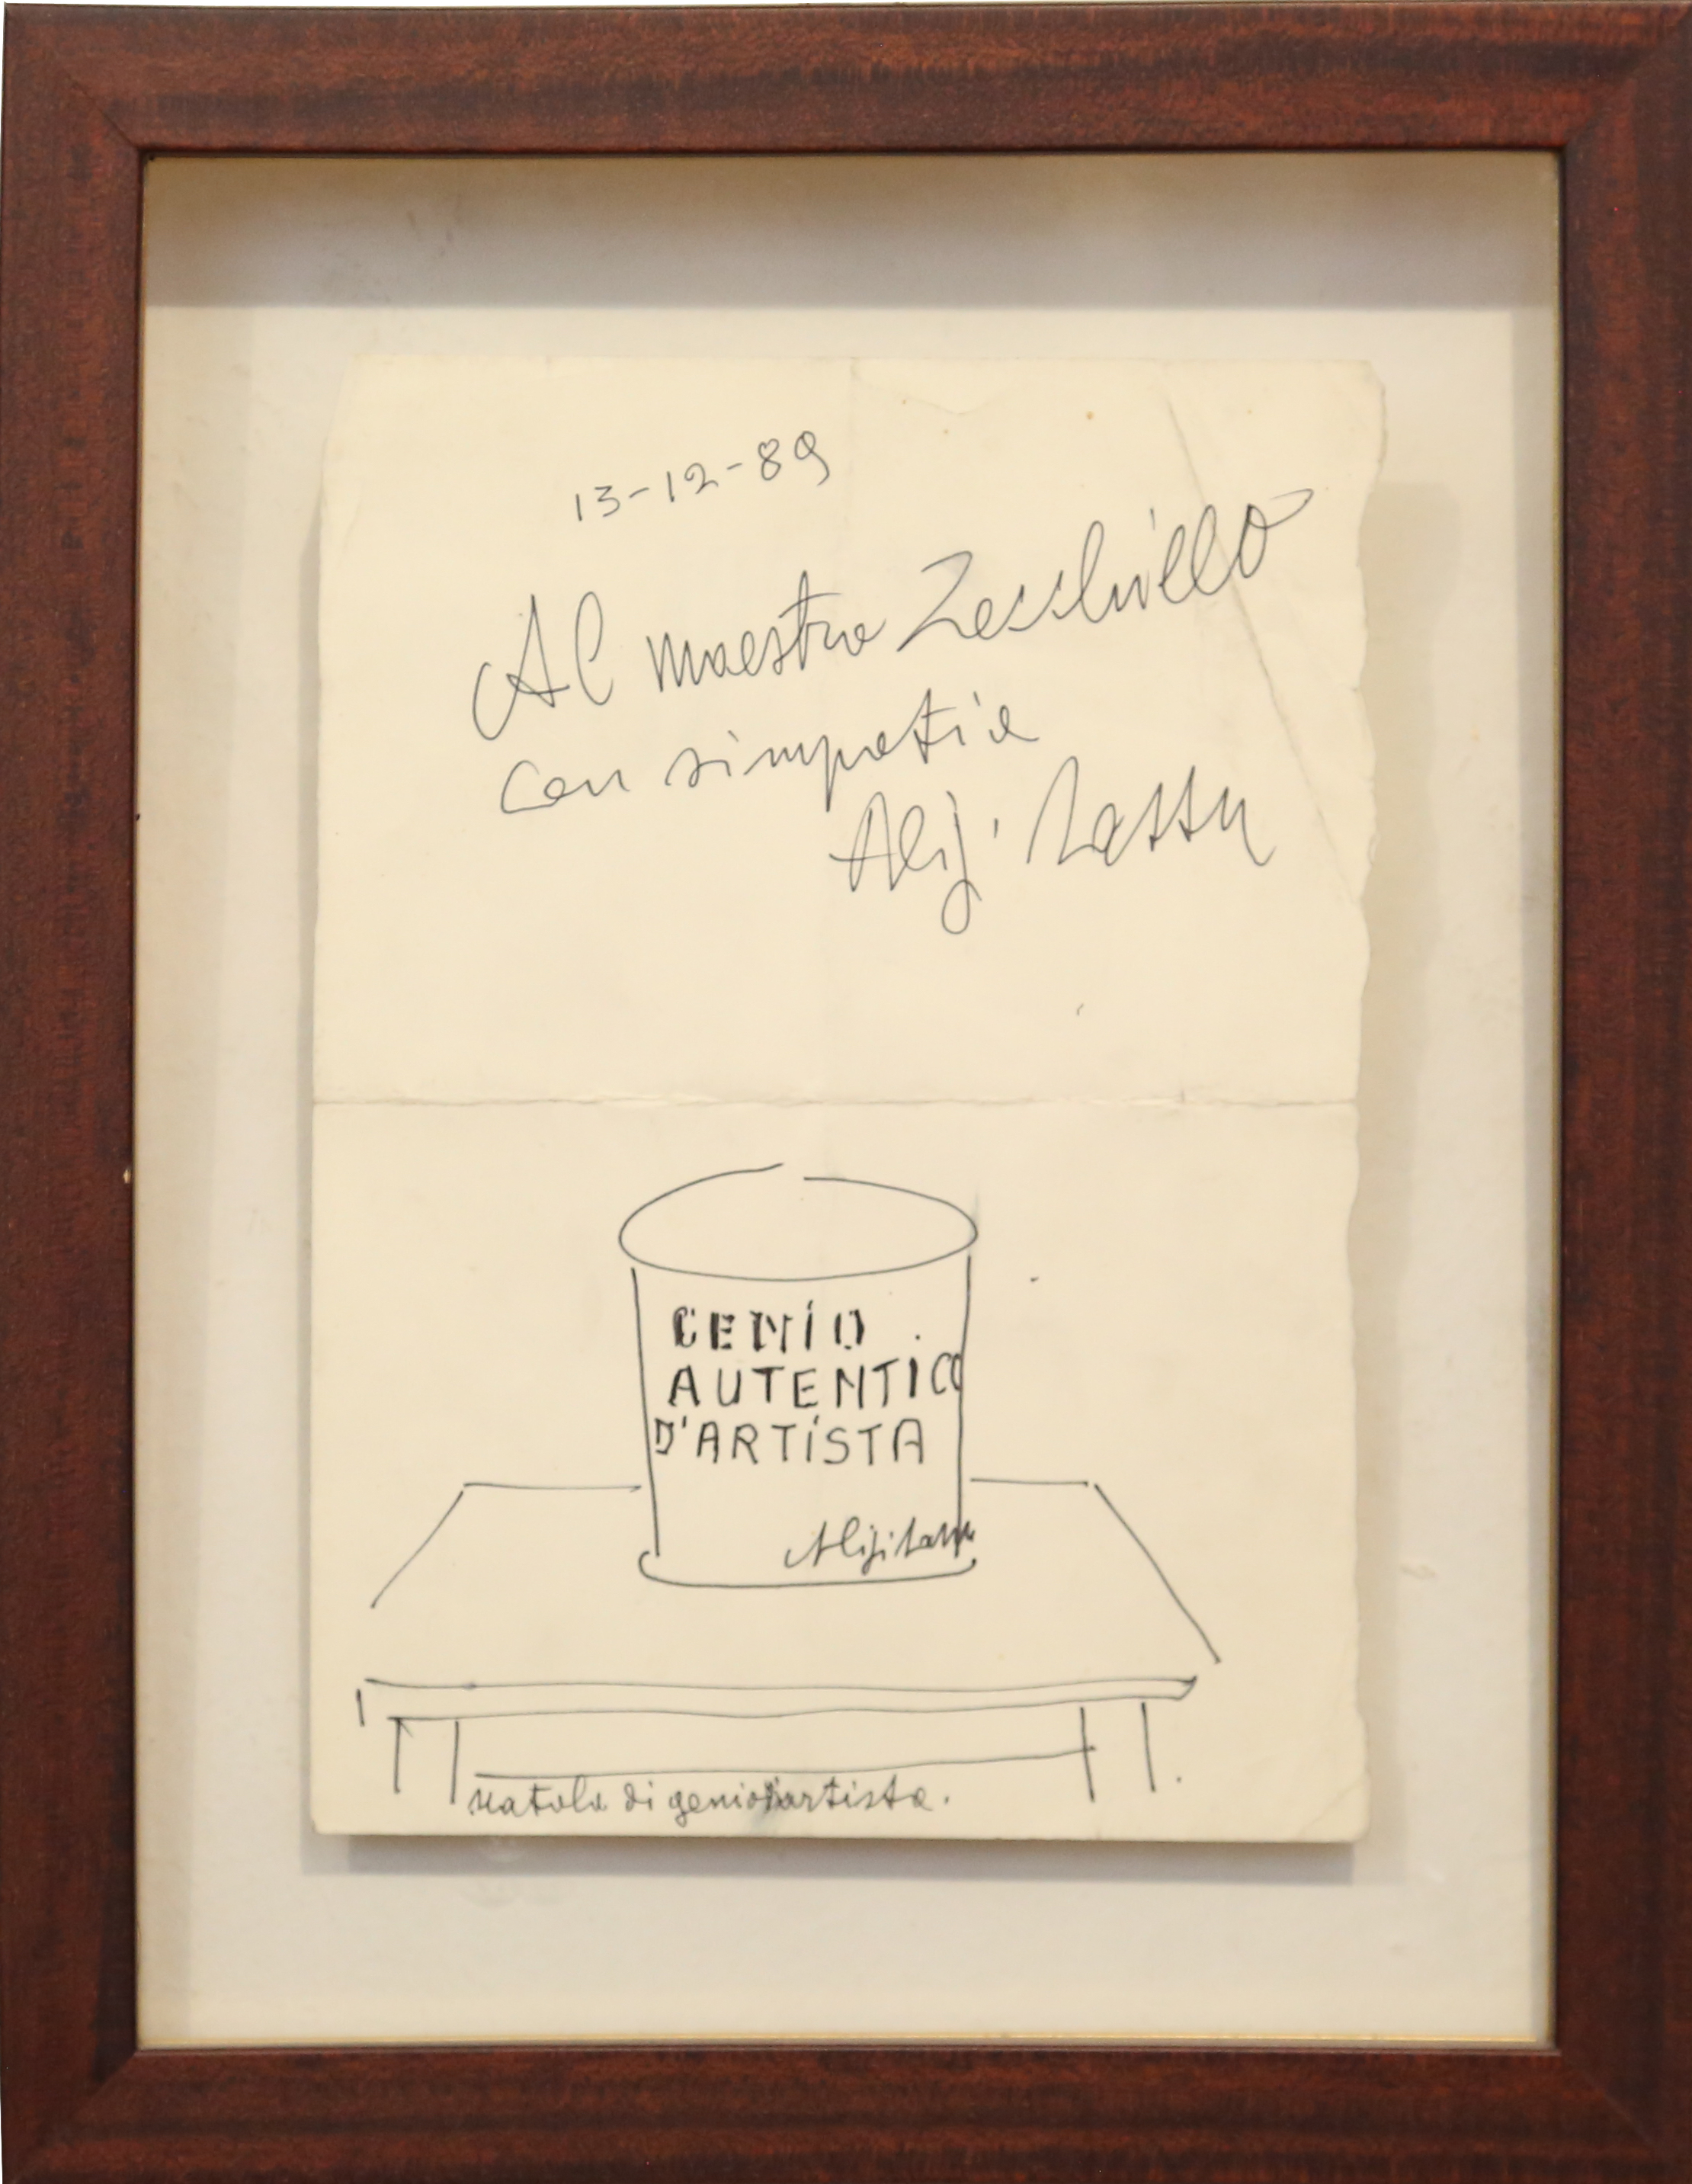 13-12-89
Al maestro Zecchillo
con simpatia
Aligi Sassu
GENIO
AUTENTICO
D'ARTISTA
Aligi Sassu
scatola di genio d'artista.